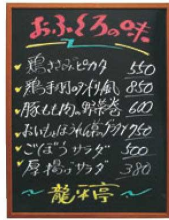 おふくろの味
鶏ささみピカタ 550
鶏手羽のアメリカ風 850
豚もも肉の野菜巻 600
おいもとほうれん草グラタン 750
ごぼうサラダ 500
厚揚げサラダ 380
龍米亭